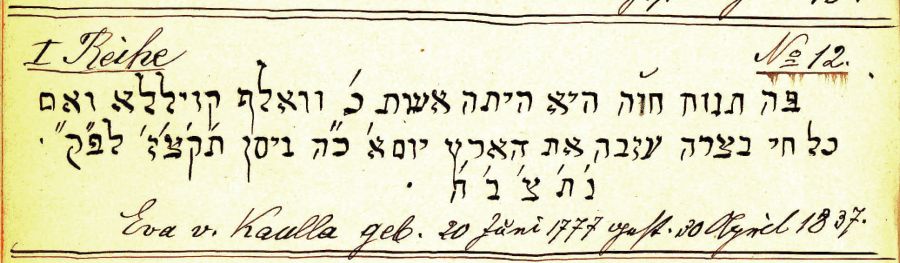 I Reihe No 12.
פה תנוח חוה היא היתה אשת כ' וואלף קויללא ואם
כל חי בצרה עזבה את הארץ יום א' כ"ה ניסן ת'ק'צ'ז' לפ"ק.
נ' ת' צ' ב' ה'
Eva v. Kaulla geb. 20 Juni 1777 gest. 30 April 1837.